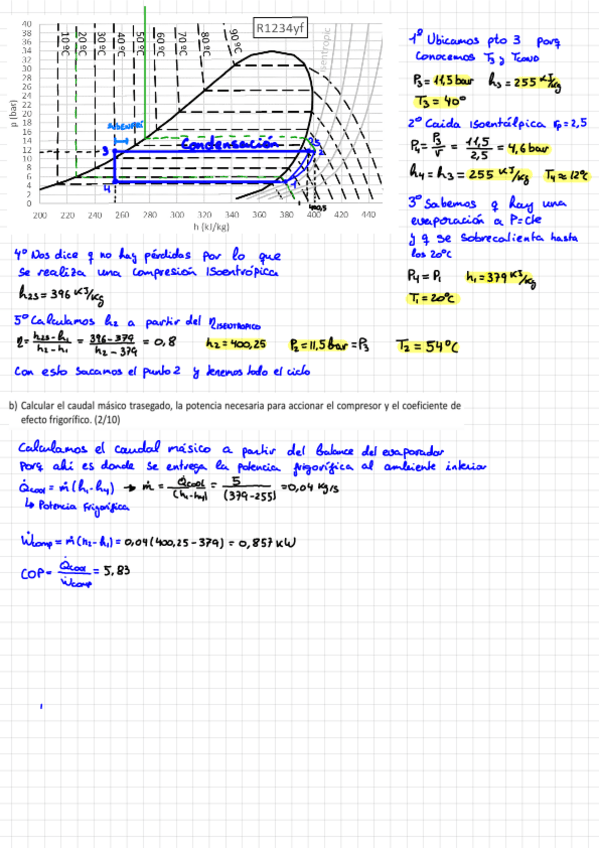 R1234yf
p (bar)
40
38
36
34
32
30
28
26
24
22
20
18
16
14
12
10
8
6
4
2
0
10 ºC
20 ºC
30 ºC
40 ºC
50 ºC
60 ºC
70 ºC
80 ºC
90 ºC
isentropic
Condensación
3
2s
2
4
1
400,5
200 220 240 260 280 300 320 340 360 380 400 420 440
h (kJ/kg)
1º Ubicamos pto 3 porq
conocemos T3 y Tcond
P3 = 11,5 bar h3 = 255 KJ/Kg
T3 = 40º
2º Caida isoentálpica rp = 2,5
P4 = P3/r = 11,5/2,5 = 4,6 bar
h4 = h3 = 255 KJ/Kg T4 ≈ 12ºC
3º Sabemos q hay una
evaporación a P=cte
y q se sobrecalienta hasta
los 20ºC
P4 = P1 h1 = 379 KJ/Kg
T1 = 20ºC
4º Nos dice q no hay pérdidas por lo que
se realiza una compresión isoentrópica
h2s = 396 KJ/Kg
5º Calculamos h2 a partir del ηISENTROPICO
η = h2s-h1/h2-h1 = 396-379/h2-379 = 0,8 h2 = 400,25 P2 = 11,5 bar = P3 T2 = 54ºC
Con esto sacamos el punto 2 y tenemos todo el ciclo
b) Calcular el caudal másico trasegado, la potencia necesaria para accionar el compresor y el coeficiente de
efecto frigorífico. (2/10)
Calculamos el caudal másico a partir del balance del evaporador
Porq ahi es donde se entrega la potencia frigorífica al ambiente interior
Q̇cool = ṁ(h1-h4) → ṁ = Q̇cool/(h1-h4) = 5/(379-255) = 0,04 kg/s
↳ Potencia Frigorífica
Ẇcomp = ṁ(h2-h1) = 0,04(400,25-379) = 0,857 KW
COP = Q̇cool/Ẇcomp = 5,83